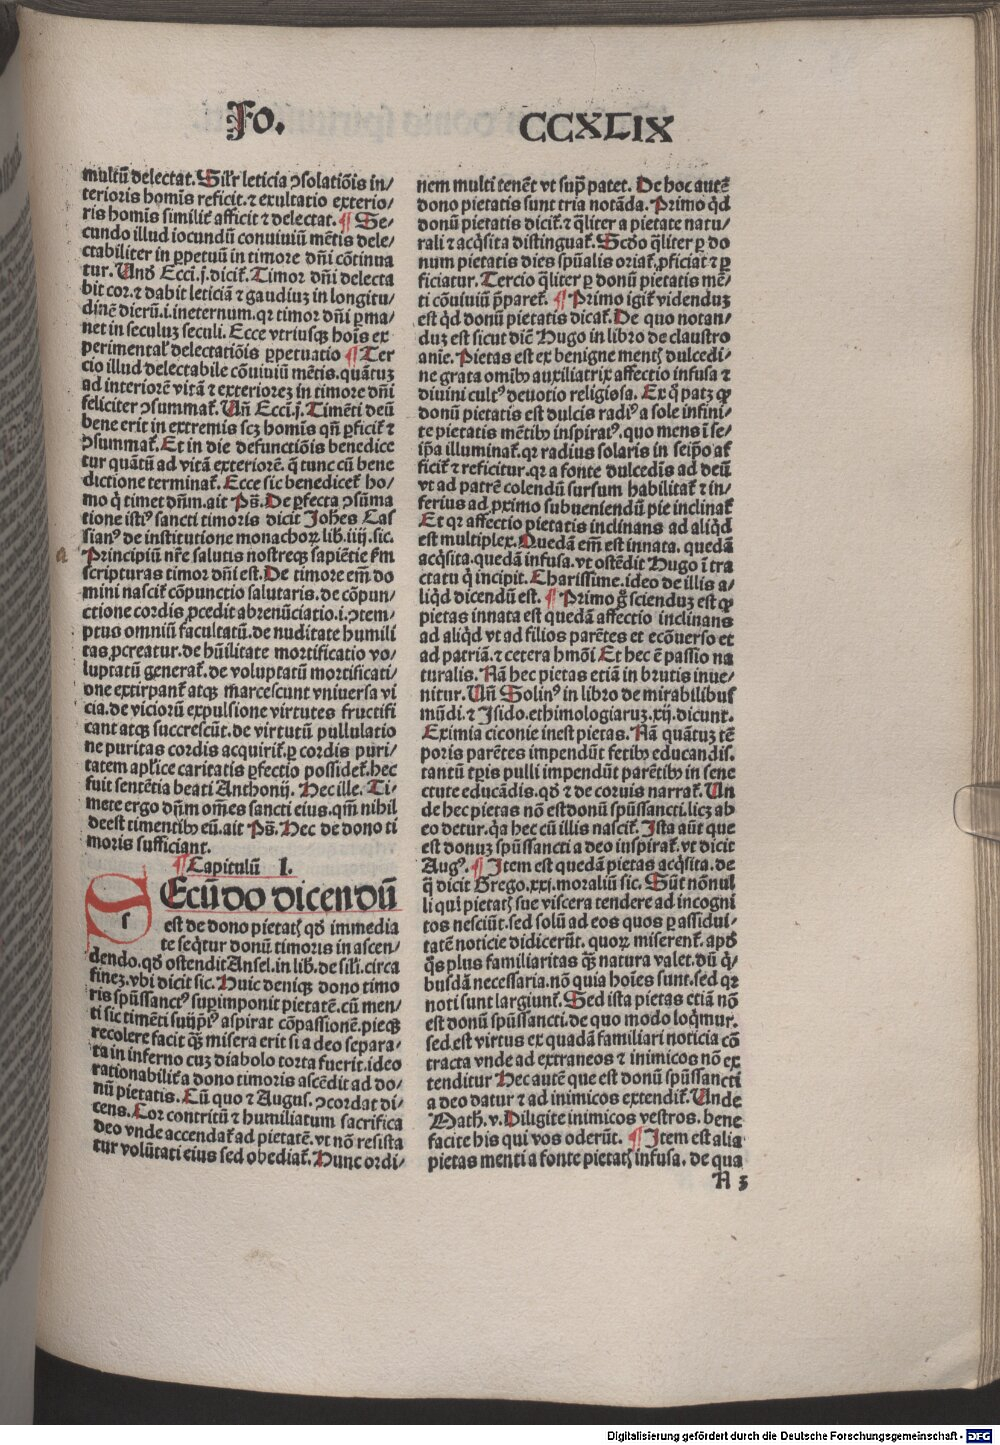 Fo. CCXLIX
multũ delectat. Silr leticia ꝯsolatiõis in/
terioris homĩs reficit. ⁊ exultatio exterio/
ris homĩs similiť afficit ⁊ delectat. ¶ Se/
cundo illud iocundũ conuiuiũ mẽtis dele/
ctabiliter in ꝑpetuũ in timore dñi cõtinua
tur. Unđ Ecci.j. diciť. Timor dñi delecta
bit cor. ⁊ dabit leticiã ⁊ gaudiuꝫ in longitu/
dinẽ dierũ.i. ineternum. qꝛ timor dñi ꝑma/
net in seculuꝫ seculi. Ecce vtriusqꝫ hoĩs ex
perimentaľ delectatiõis ꝑpetuatio ¶ Ter
cio illud delectabile cõuiuiũ mẽtis. quãtuꝫ
ad interiorẽ vitã ⁊ exterioreꝫ in timore dñi
feliciter ꝯsummať. Uñ Ecci.j. Timẽti deũ
bene erit in extremis scꝫ homĩs qñ ꝑficiť ⁊
ꝯsummať. Et in die defunctiõis benedice
tur quãtũ ad vitã exteriorẽ. q̃ tunc cũ bene
dictione terminať. Ecce sic benediceť ho/
mo q̇ timet dñm. ait Ps̃. De ꝑfecta ꝯsũma
tione istiꝰ sancti timoris dicit Johẽs Cas
sianꝰ de institutione monachoꝝ lib. iiij. sic.
Principiũ nr̃e salutis nostreqꝫ sapiẽtie ẜm
scripturas timor dñi est. De timore em̃ do
mini nasciť cõpunctio salutaris. de cõpun/
ctione cordis ꝓcedit abrenũciatio.i. ꝯtem/
ptus omniũ facultatũ. de nuditate humili
tas ꝓcreatur. de hũilitate mortificatio vo/
luptatũ generať. de voluptatũ mortificati/
one extirpanť atqꝫ m̃arcescunt vniuersa vi
cia. de viciorũ expulsione virtutes fructifi
cant atqꝫ succrescũt. de virtutũ pullulatio
ne puritas cordis acquiriť. ꝑ cordis puri/
tatem apľice caritatis ꝑfectio possideť. hec
fuit sentẽtia beati Anthonij. Hec ille. Ti/
mete ergo dñm om̃es sancti eius. qm̃ nihil
deest timentibꝰ eũ. ait Ps̃. Hec de dono ti
moris sufficiant.
¶ Capitulũ I.
SEcũdo dicendũ
est de dono pietatꝭ qđ immedia
te seq̃tur donũ timoris in ascen/
dendo. qđ ostendit Ansel. in lib. de sili. circa
fineꝫ. vbi dicit sic. Huic deniqꝫ dono timo
ris spũssanctꝰ supimponit pietatẽ. cũ men/
ti sic timẽti suijp̃iꝰ aspirat cõpassionẽ. pieqꝫ
recolere facit qꝫ̃ misera erit si a deo separa/
ta in inferno cuꝫ diabolo torta fuerit. ideo
rationabiliť a dono timoris ascẽdit ad do/
nũ pietatis. Cũ quo ⁊ Augus. ꝯcordat di/
cens. Cor contritũ ⁊ humiliatum sacrifica
deo vnde accendať ad pietatẽ. vt nõ resista
tur volũtati eius sed obediať. Hunc ordi/
nem multi tenẽt vt sup̃ patet. De hoc autẽ
dono pietatis sunt tria notãda. Primo q̇d
donũ pietatis diciť. ⁊ q̃liter a pietate natu/
rali ⁊ acq̇sita distinguať. Scđo q̃liter ꝑ do
num pietatis dies spũalis oriať. ꝓficiat ⁊ ꝑ
ficiatur. Tercio q̃liter ꝑ donũ pietatis mẽ/
ti cõuiuiũ p̃pareť. ¶ Primo igiť videnduꝫ
est q̇d donũ pietatis dicať. De quo notan/
duꝫ est sicut diẽ Hugo in libro de claustro
anie. Pietas est ex benigne mentꝭ dulcedi/
ne grata omibꝰ auxiliatrix affectio infusa ⁊
diuini cultꝰ deuotio religiosa. Ex q̇ patꝫ ꝙ
donũ pietatis est dulcis radiꝰ a sole infini/
te pietatis mẽtibꝰ inspiratꝰ. quo mens ĩ se/
ip̃a illuminať. qꝛ radius solaris in seip̃o af
ficiť ⁊ reficitur. qꝛ a fonte dulcedĩs ad deũ
vt ad patrẽ colendũ sursum habilitať ⁊ in/
ferius ad ꝓximo subueniendũ pie inclinať
Et qꝛ affectio pietatis inclinans ad aliq̇d
est multiplex. Quedã em̃ est innata. quedã
acq̇sita. quedã infusa. vt ostẽdit Hugo ĩ tra
ctatu q̇ incipit. Charissime. ideo de illis a/
liq̇d dicendũ est. ¶ Primo g̃ sciendũ est ꝙ
pietas innata est quedã affectio inclinans
ad aliq̇d vt ad filios parẽtes et ecõuerso et
ad patriã. ⁊ cetera hmõi Et hec ẽ passio na
turalis. Nã hec pietas etiã in brutis inue/
nitur. Uñ Solinꝰ in libro de mirabilibus
mũdi. ⁊ Isido. ethimologiaruꝫ. xij. dicunt.
Eximia ciconie inest pietas. Nã quãtuꝫ tẽ
poris parẽtes impendũt fetibꝰ educandis.
tantũ tꝑis pulli impendũt parẽtibꝰ in sene
ctute educãdis. qđ ⁊ de coruis narrať. Un
de hec pietas nõ est donũ spũssancti. licꝫ ab
eo detur. q̇a hec cũ illis nasciť. Ista aũt que
est donuꝫ spũssancti a deo inspirať. vt dicit
Augꝰ. ¶ Item est quedã pietas acq̇sita. de
q̃ dicit Grego. xxj. moraliũ sic. Sũt nõnul
li qui pietatꝭ sue viscera tendere ad incogni
tos nesciũt. sed solũ ad eos quos ꝑ assidui/
tatẽ noticie didicerũt. quoꝝ miserenť. apđ
q̃s plus familiaritas qꝫ̃ natura valet. dũ q̇/
busdã necessaria. nõ quia hoĩes sunt. sed qꝛ
noti sunt largiunť. Sed ista pietas etiã nõ
est donũ spũssancti. de quo modo loq̃mur.
sed est virtus ex quadã familiari noticia cõ
tracta vnde ad extraneos ⁊ inimicos nõ ex
tenditur Hec autẽ que est donũ spũssancti
a deo datur ⁊ ad inimicos extendiť. Unde
Math. v. Diligite inimicos vestros. bene
facite his qui vos oderũt. ¶ Item est alia
pietas menti a fonte pietatꝭ infusa. de qua
A 3
Digitalisierung gefördert durch die Deutsche Forschungsgemeinschaft - DFG